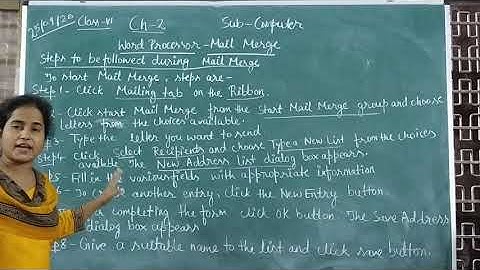 25/09/20 Class-VI Ch-2 Sub-Computer
Word Processor-Mail Merge
Steps to be followed during Mail Merge
To start Mail Merge, steps are-
Step 1- Click Mailing tab on the Ribbon.
2- Click start Mail Merge from the Start Mail Merge group and choose
letters from the choices available.
3- Type the letter you want to send
Step4- Click Select Recipients and choose Type a New List from the choices
available. The New Address list dialog box appears.
5- Fill in the various fields with appropriate information
To another entry, click the New Entry button
completing the form click OK button. The Save Address
dialog box appears
8- Give a suitable name to the list and click save button.